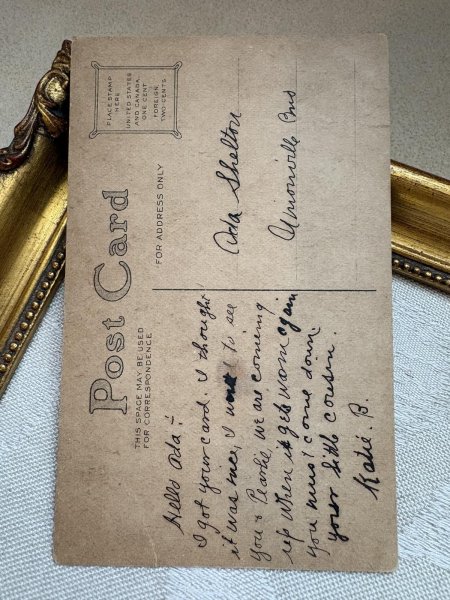 Post Card
THIS SPACE MAY BE USED
FOR CORRESPONDENCE
FOR ADDRESS ONLY
PLACE STAMP
HERE
UNITED STATES
AND CANADA
ONE CENT
FOREIGN
TWO CENTS
Hello Ada:-
I got your card. I thought
it was nice, I want to see
you & Pearlie we are comeing
up when it gets warm again
you must come down.
your little cousin.
Katie. B.
Ada Shelton
Unionville Mo